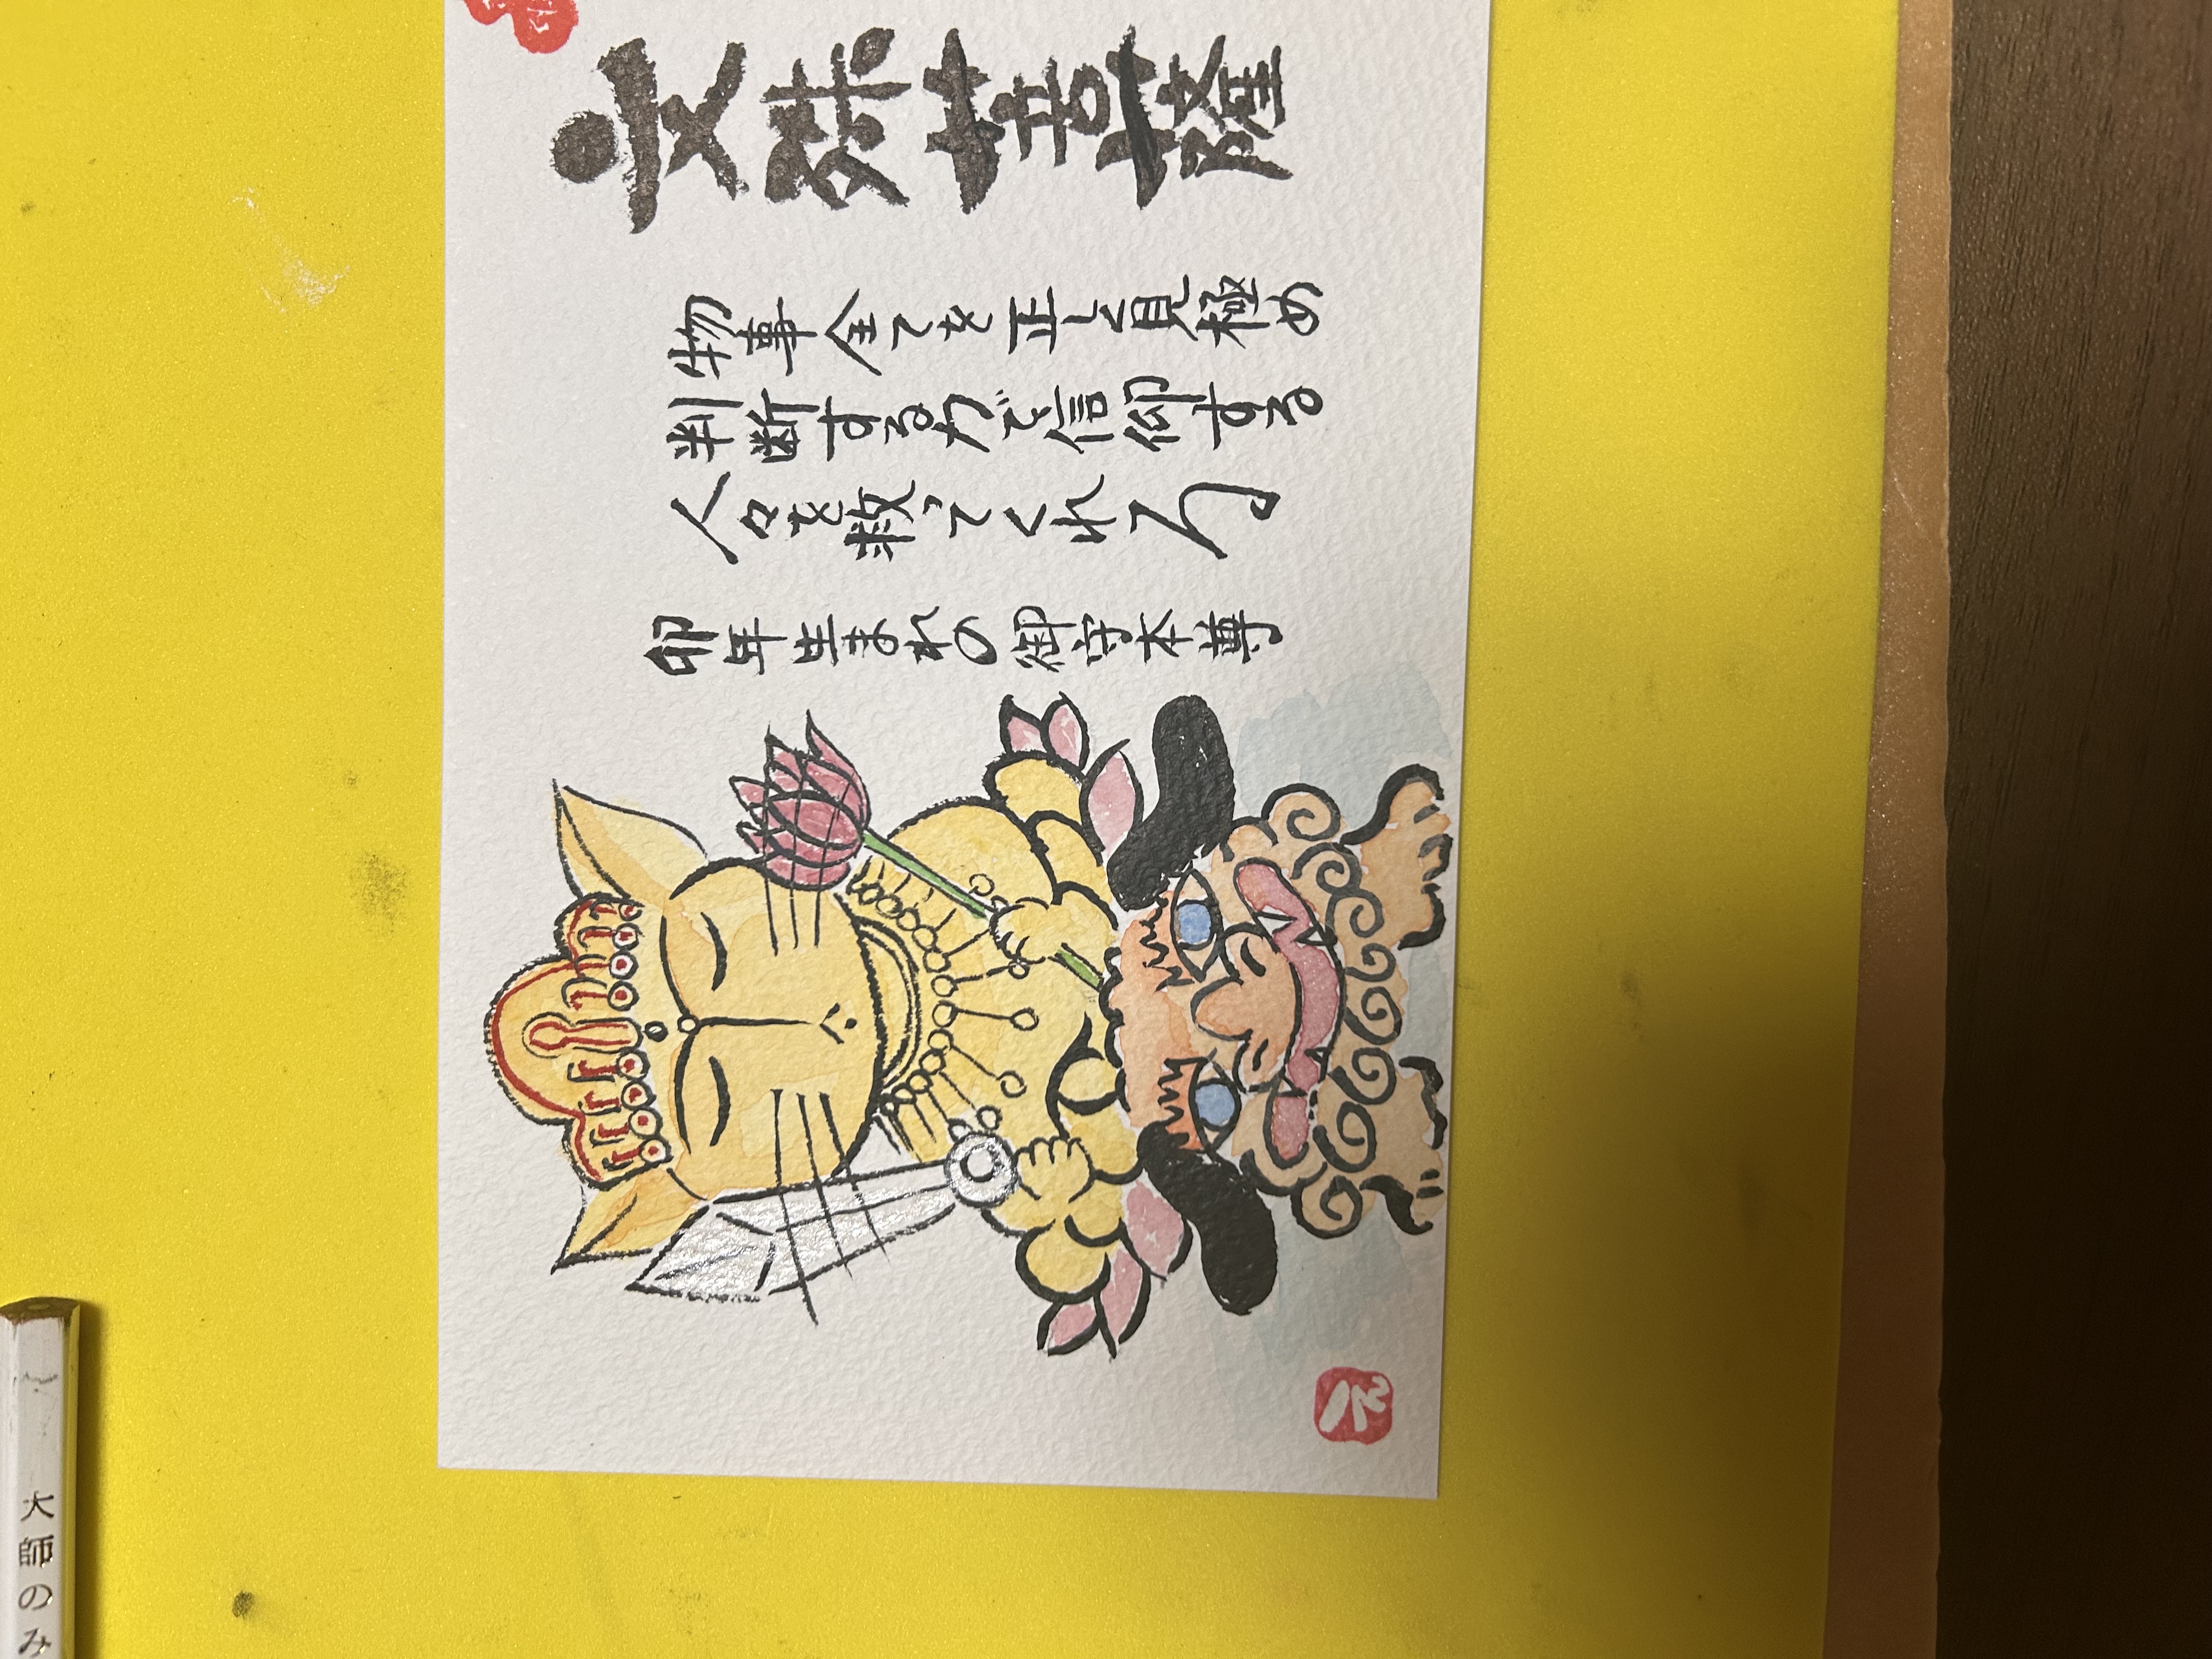 文殊菩薩
物事全てを正しく見極め
判断する力で信仰する
人々を救ってくれる
卯年生まれの御守本尊
大師のみ